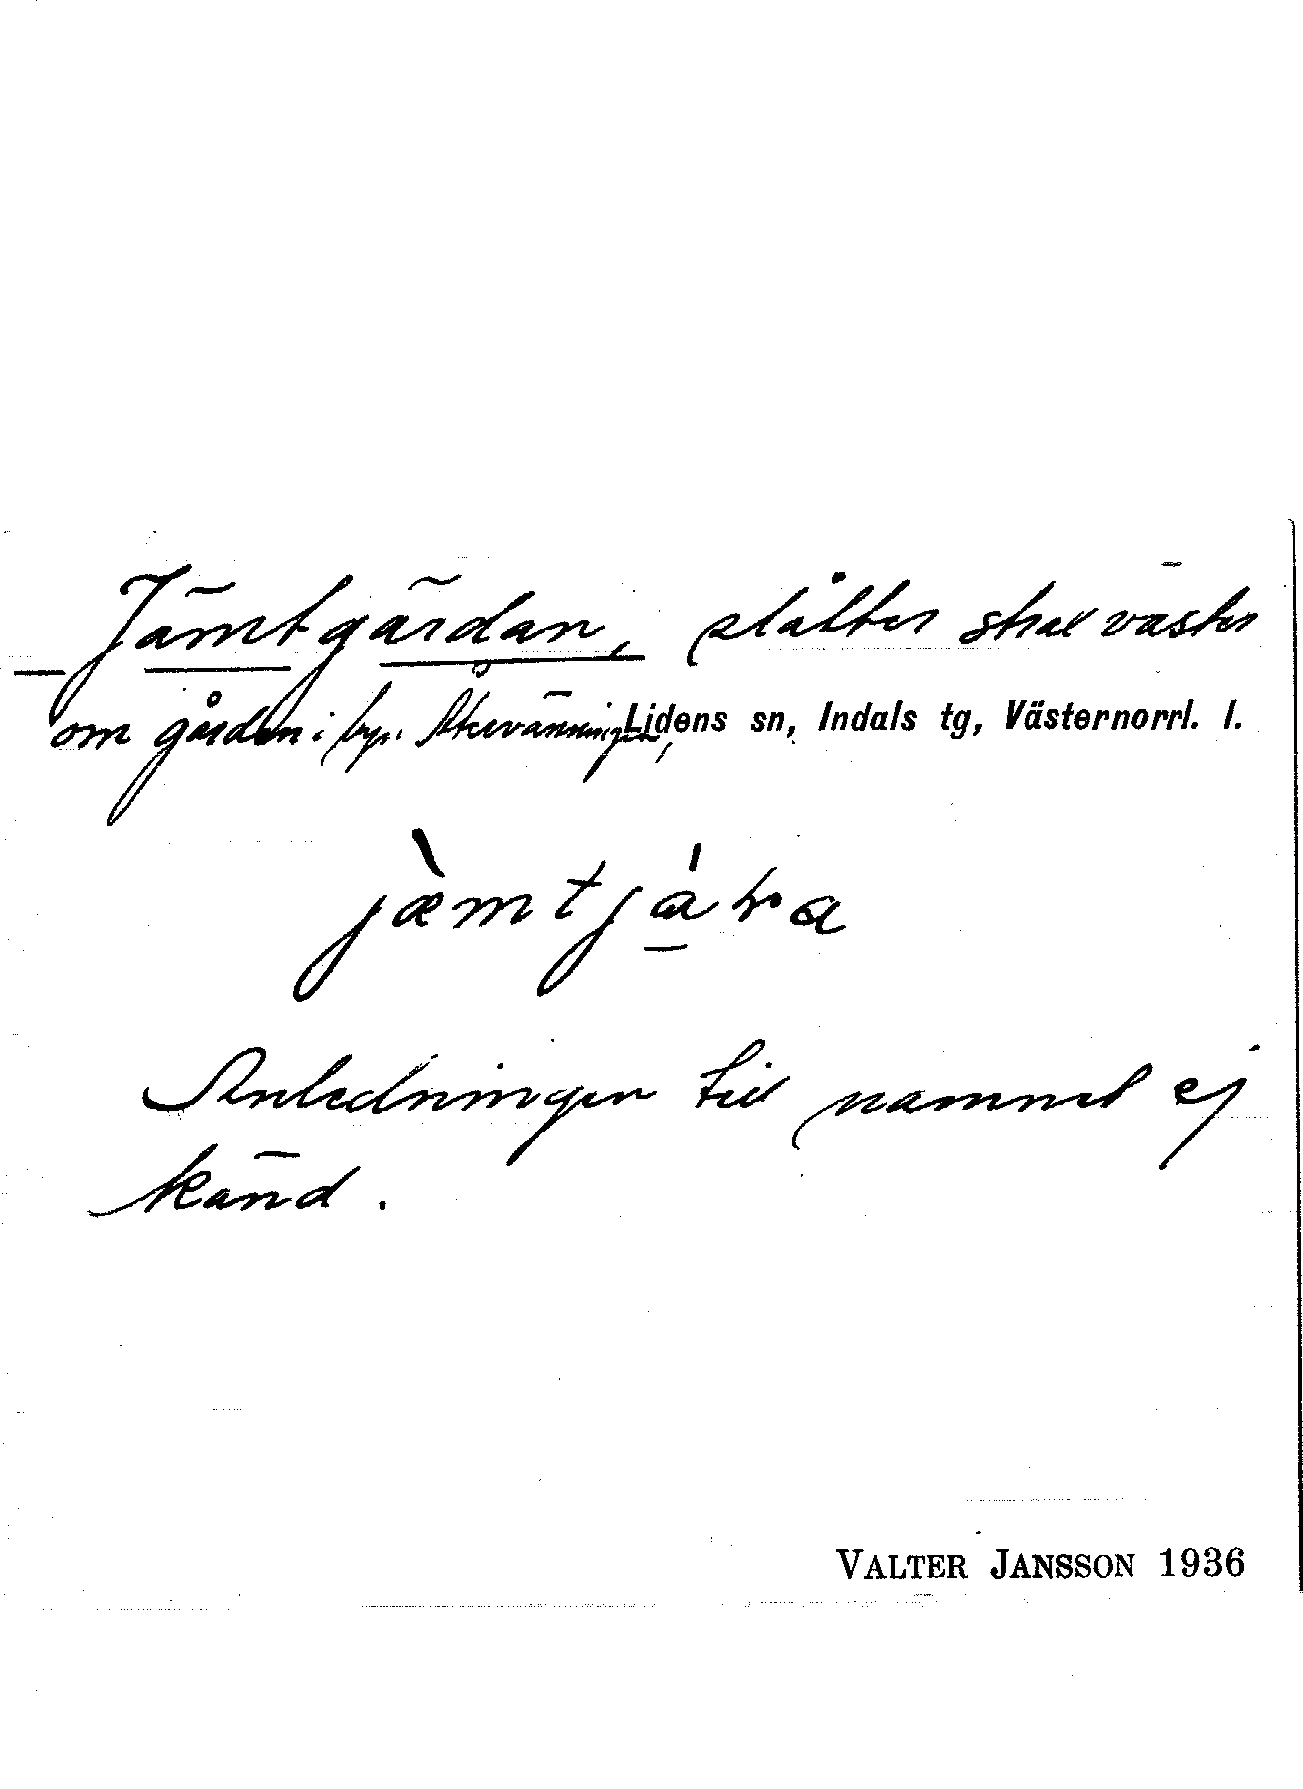 Jämtgärdan, slåtter strax väster
om gården i byn Åkervänningen, Lidens sn, Indals tg, Västernorrl. l.
jæ̀mtjá̠ra
Anledningen till namnet ej
känd.
VALTER JANSSON 1936